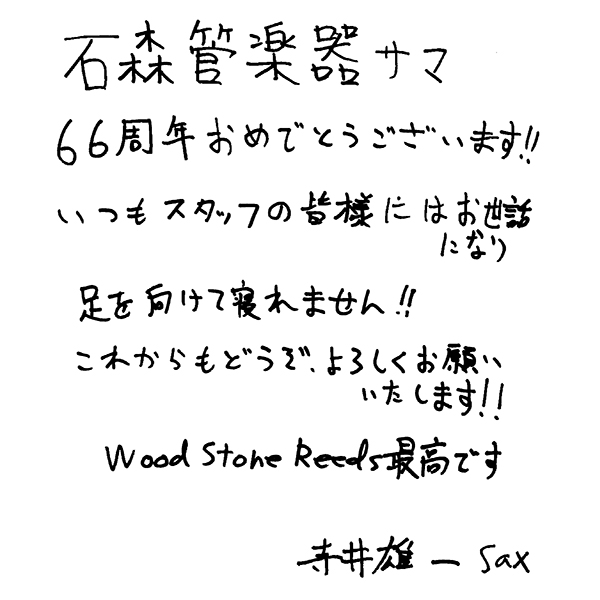 石森管楽器サマ
66周年おめでとうございます!!
いつもスタッフの皆様にはお世話
になり
足を向けて寝れません!!
これからもどうぞ、よろしくお願い
いたします!!
Wood Stone Reeds最高です
寺井雄一 Sax